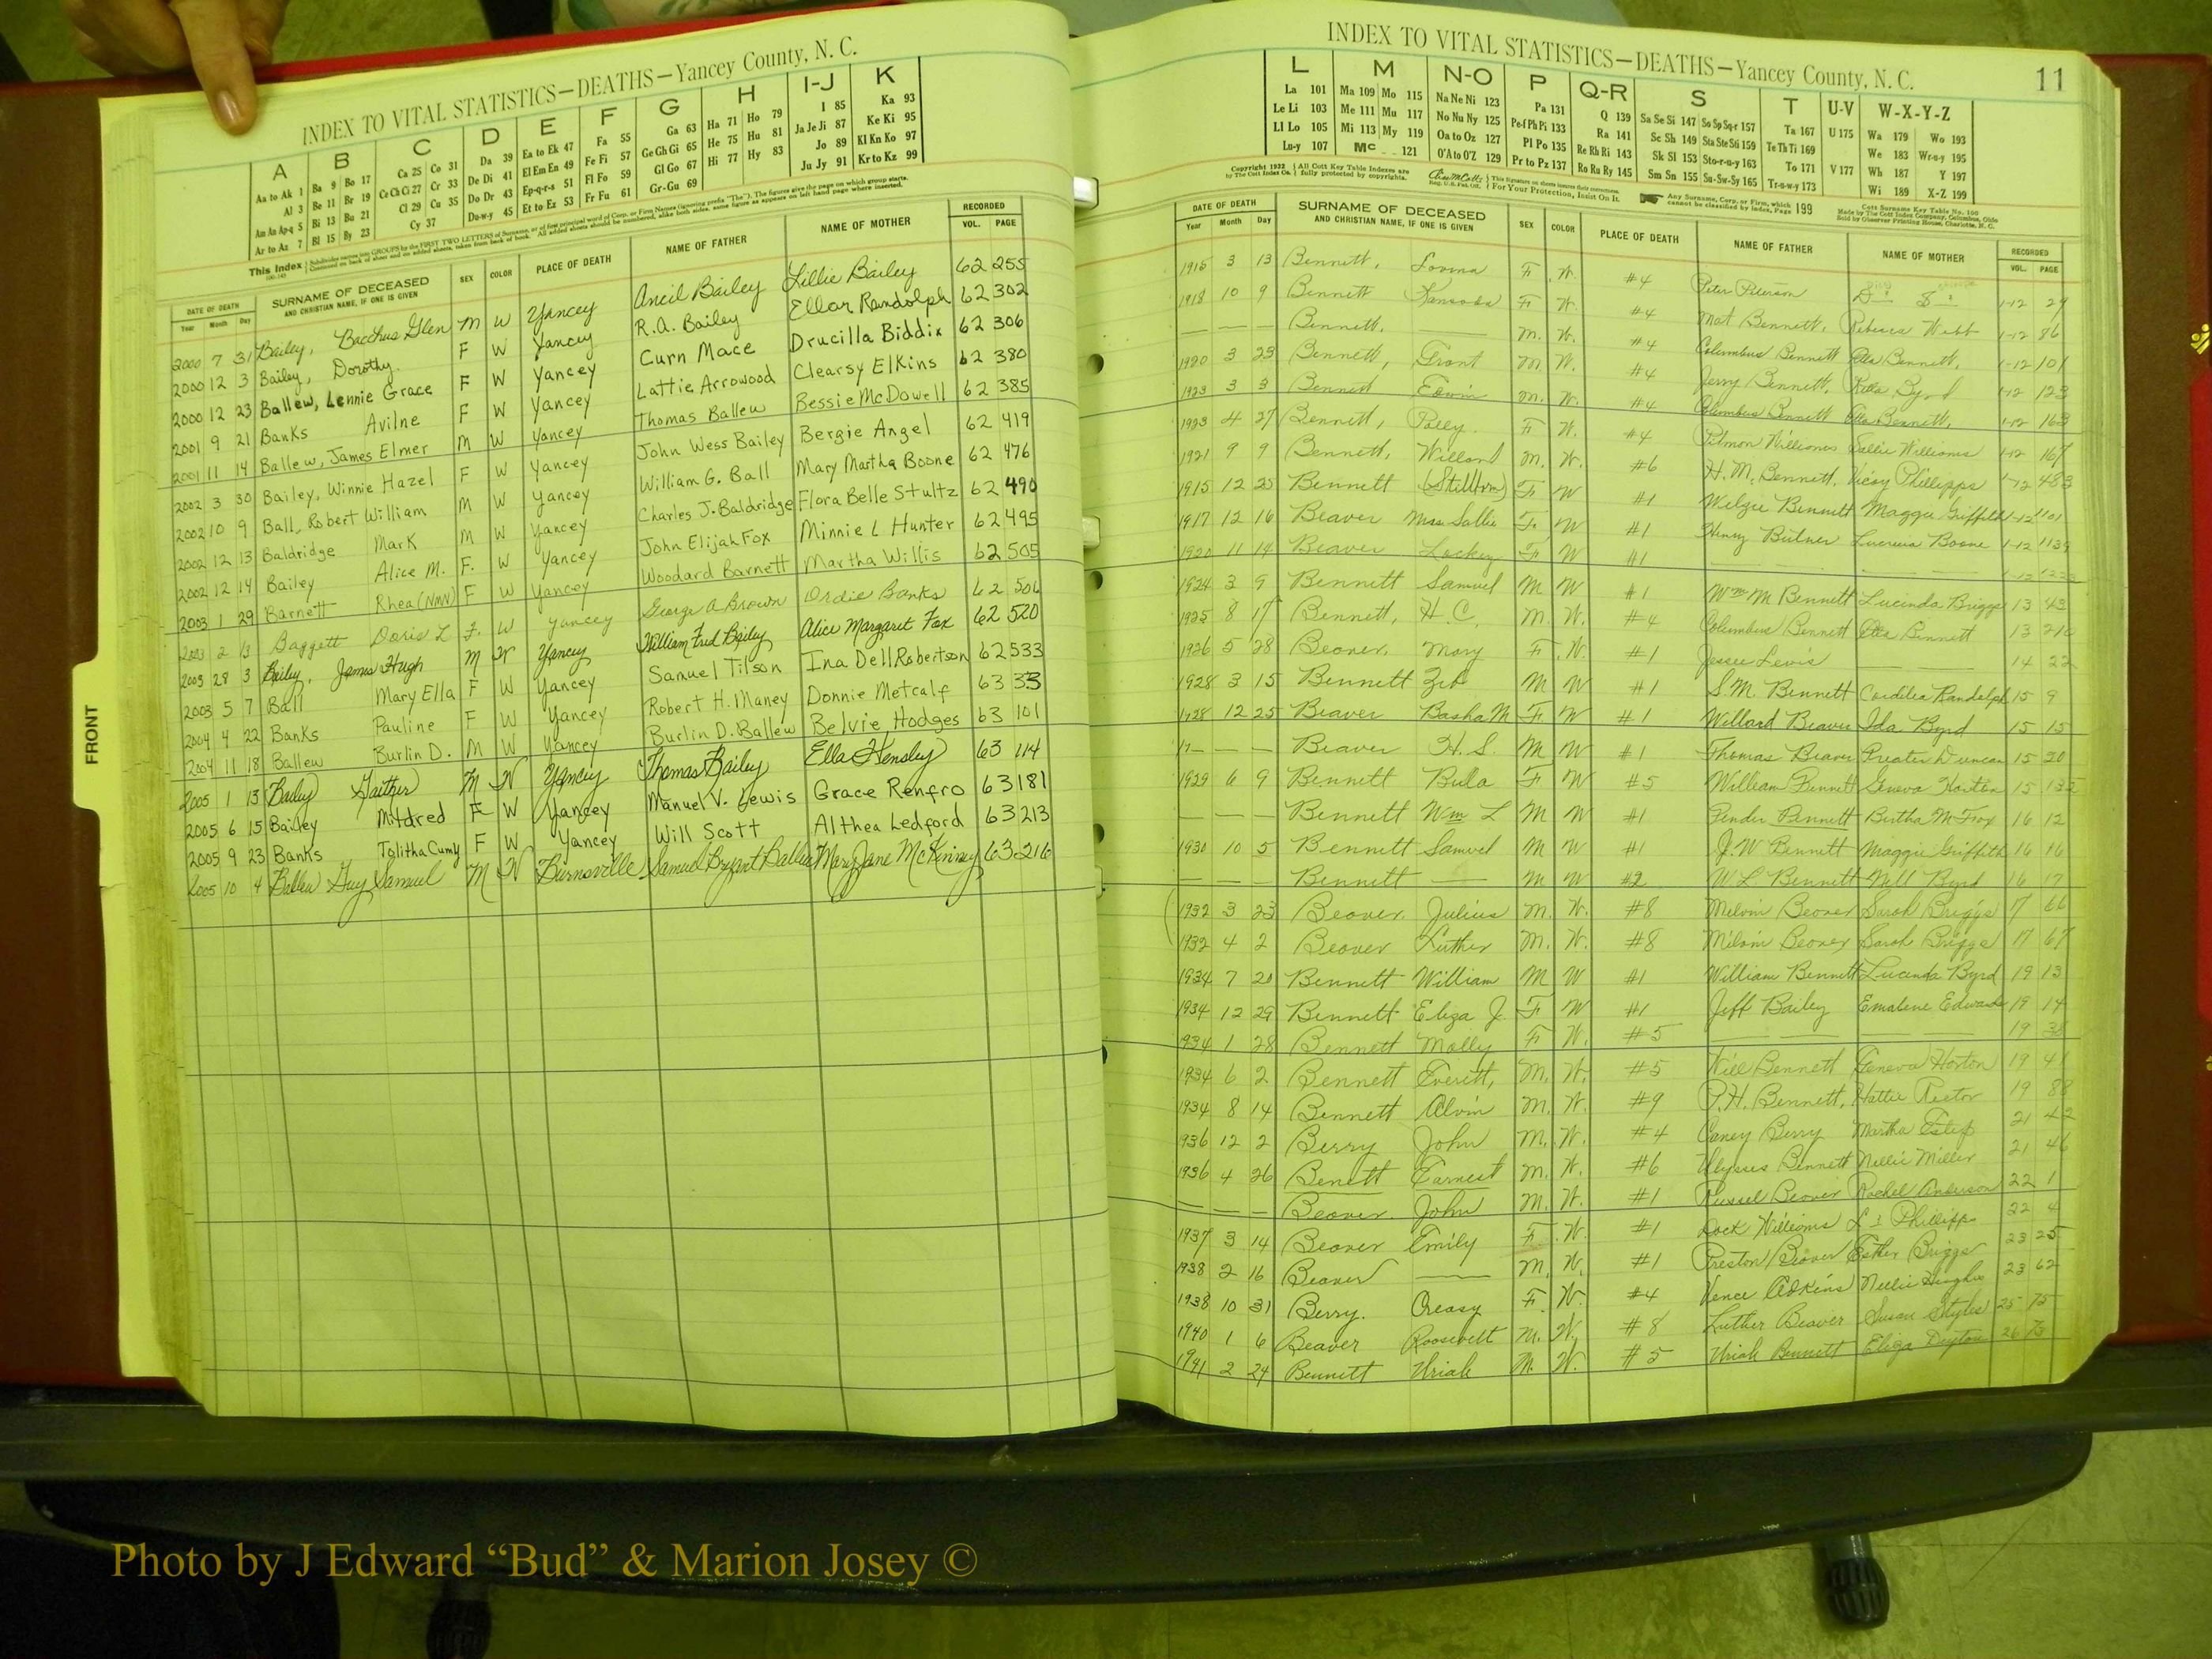 INDEX TO VITAL STATISTICS—DEATHS—Yancey County, N. C.
A B C D E F G H I-J K
Aa to Ak 1 Ba 9 Bo 17 Ca 25 Co 31 Da 39 Ea to Ek 47 Fa 55 Ga 63 Ha 71 Ho 79 I 85 Ka 93
Al 3 Be 11 Br 19 Ce Ch Ci 27 Cr 33 De Di 41 El Em En 49 Fe Fi 57 Ge Gh Gi 65 He 75 Hu 81 Ja Je Ji 87 Ke Ki 95
Am An Ap-q 5 Bi 13 Bu 21 Cl 29 Cu 35 Do Dr 43 Ep-q-r-s 51 Fl Fo 59 Gl Go 67 Hi 77 Hy 83 Jo 89 Kl Kn Ko 97
Ar to Az 7 Bl 15 By 23 Cy 37 Du-w-y 45 Et to Ez 53 Fr Fu 61 Gr-Gu 69 Ju Jy 91 Kr to Kz 99
DATE OF DEATH SURNAME OF DECEASED SEX COLOR PLACE OF DEATH NAME OF FATHER NAME OF MOTHER RECORDED
Year Month Day AND CHRISTIAN NAME, IF ONE IS GIVEN VOL. PAGE
2000 7 31 Bailey, Bacchus Glen M W Yancey Ancil Bailey Lillie Bailey 62 255
2000 12 3 Bailey, Dorothy F W Yancey R.A. Bailey Ellar Randolph 62 302
2000 12 23 Ballew, Lennie Grace F W Yancey Curn Mace Drucilla Biddix 62 306
2001 9 21 Banks Avilne F W Yancey Lattie Arrowood Clearsy Elkins 62 380
2001 11 14 Ballew, James Elmer M W Yancey Thomas Ballew Bessie McDowell 62 385
2002 3 30 Bailey, Winnie Hazel F W Yancey John Wess Bailey Bergie Angel 62 419
2002 10 9 Ball, Robert William M W Yancey William G. Ball Mary Martha Boone 62 476
2002 12 13 Baldridge Mark M W Yancey Charles J. Baldridge Flora Belle Stultz 62 490
2002 12 14 Bailey Alice M. F. W Yancey John Elijah Fox Minnie L Hunter 62 495
2003 1 29 Barnett Rhea (NMN) F W Yancey Woodard Barnett Martha Willis 62 505
2003 2 13 Baggett Doris L F. W Yancey George A Brown Ordie Banks 62 506
2003 28 3 Bailey, James Hugh M W Yancey William Fred Bailey Alice Margaret Fox 62 520
2003 5 7 Ball Mary Ella F W Yancey Samuel Tilson Ina Dell Robertson 62 533
2004 4 22 Banks Pauline F W Yancey Robert H. Maney Donnie Metcalf 63 33
2004 11 18 Ballew Burlin D. M W Yancey Burlin D. Ballew Belvie Hodges 63 101
2005 1 13 Bailey Gaither M W Yancey Thomas Bailey Ella Hensley 63 114
2005 6 15 Bailey Mildred F W Yancey Manuel V. Lewis Grace Renfro 63 181
2005 9 23 Banks Talitha Cumy F W Yancey Will Scott Althea Ledford 63 213
2005 10 4 Ballew Guy Samuel M W Burnsville Samuel Bryant Ballew Mary Jane McKinney 63 216
FRONT
INDEX TO VITAL STATISTICS—DEATHS—Yancey County, N. C. 11
L M N-O P Q-R S T U-V W-X-Y-Z
La 101 Ma 109 Mo 115 Na Ne Ni 123 Pa 131 Q 139 Sa Se Si 147 So Sp Sq-r 157 Ta 167 U 175 Wa 179 Wo 193
Le Li 103 Me 111 Mu 117 No Nu Ny 125 Pe-f Ph Pi 133 Ra 141 Sc Sh 149 Sta Ste Sti 159 Te Th Ti 169 We 183 Wr-u-y 195
Ll Lo 105 Mi 113 My 119 Oa to Oz 127 Pl Po 135 Re Rh Ri 143 Sk Sl 153 Sto-r-u-y 163 To 171 V 177 Wh 187 Y 197
Lu-y 107 Mc 121 O'A to O'Z 129 Pr to Pz 137 Ro Ru Ry 145 Sm Sn 155 Su-Sw-Sy 165 Tr-u-w-y 173 Wi 189 X-Z 199
DATE OF DEATH SURNAME OF DECEASED SEX COLOR PLACE OF DEATH NAME OF FATHER NAME OF MOTHER RECORDED
Year Month Day AND CHRISTIAN NAME, IF ONE IS GIVEN VOL. PAGE
1915 3 13 Bennett, Lovina F. W. #4 Peter Peterson 1-12 29
1918 10 9 Bennett F W. #4 Mat Bennett, Rebecca Webb 1-12 86
— — — Bennett, — M. W. #4 Columbus Bennett Etta Bennett, 1-12 101
1920 3 23 Bennett, Grant M. W. #4 Jerry Bennett, Byrd 1-12 123
1923 3 3 Bennett Edwin M. W. #4 Columbus Bennett Etta Bennett, 1-12 163
1923 4 27 Bennett, Polly F W. #4 Pitmon Williams Sallie Williams 1-12 167
1921 9 9 Bennett, Willard M. W. #6 H. M. Bennett, Vicey Phillipps 1-12 483
1915 12 25 Bennett (Stillborn) F W #1 Welzie Bennett Maggie Griffith 1-12 1101
1917 12 16 Beaver Mrs. Sallie F W #1 Henry Butner Lucretia Boone 1-12
1920 11 14 Beaver Lockey F W #1 — —
1924 3 9 Bennett Samuel M W #1 Wm M Bennett Lucinda Briggs 13 43
1925 8 17 Bennett, H. C. M. W. #4 Columbus Bennett Etta Bennett 13 210
1926 5 28 Beaver, Mary F. W. #1 Jesse Lewis — 14 22
1928 3 15 Bennett Zeb M W #1 S. M. Bennett Cordelea Randolph 15 9
1928 12 25 Beaver Basha M F W #1 Willard Beaver Ida Byrd 15 15
" — — — Beaver H. S. M W #1 Thomas Beaver Duncan 15 20
1929 6 9 Bennett Bula F W #5 William Bennett Geneva Horton 15 132
— — — Bennett Wm L M W #1 Pender Bennett Bertha McFox 16 12
1930 10 5 Bennett Samuel M W #1 J. W Bennett Maggie Griffith 16 16
— — — Bennett — M W #2 W. L. Bennett Nell Byrd 16 17
1932 3 23 Beaver Julius M. W. #8 Melvin Beaver Sarah Briggs 17 66
1932 4 2 Beaver Luther M. W. #8 Melvin Beaver Sarah Briggs 17 67
1934 7 20 Bennett William M W #1 William Bennett Lucinda Byrd 19 13
1934 12 29 Bennett Eliza J. F W #1 Jeff Bailey Emaline Edwards 19 14
1934 1 28 Bennett Molly F W. #5 — — 19 38
1934 6 2 Bennett Everitt, M. W. #5 Will Bennett Geneva Horton 19 41
1934 8 14 Bennett Alvin M. W. #9 P. H. Bennett, Hattie Rector 19 88
1936 12 2 Berry John M. W. #4 Caney Berry Martha Estep 21 42
1936 4 26 Benett Earnest M. W. #6 Ulysses Bennett Nellie Miller 21 46
— — — Beaver John M. W. #1 Russel Beaver Rachel Anderson 22 1
1937 3 14 Beaver Emily F. W. #1 Dock Williams Phillips 22 4
1938 2 16 Beaver — M. W. #1 Preston Beaver Esther Briggs 23 25
1938 10 31 Berry. Creasy F. W. #4 Vence Adkins Nellie Hughes 23 62
1940 1 6 Beaver Roosevelt M. W. #8 Luther Beaver Susan Styles 25 75
1941 2 24 Bennett Uriah M. W. #5 Uriah Bennett Eliza Deyton 26
Photo by J Edward “Bud” & Marion Josey ©